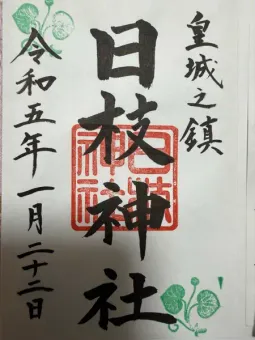 皇城之鎮
日枝神社
令和五年一月二十二日
日枝神社